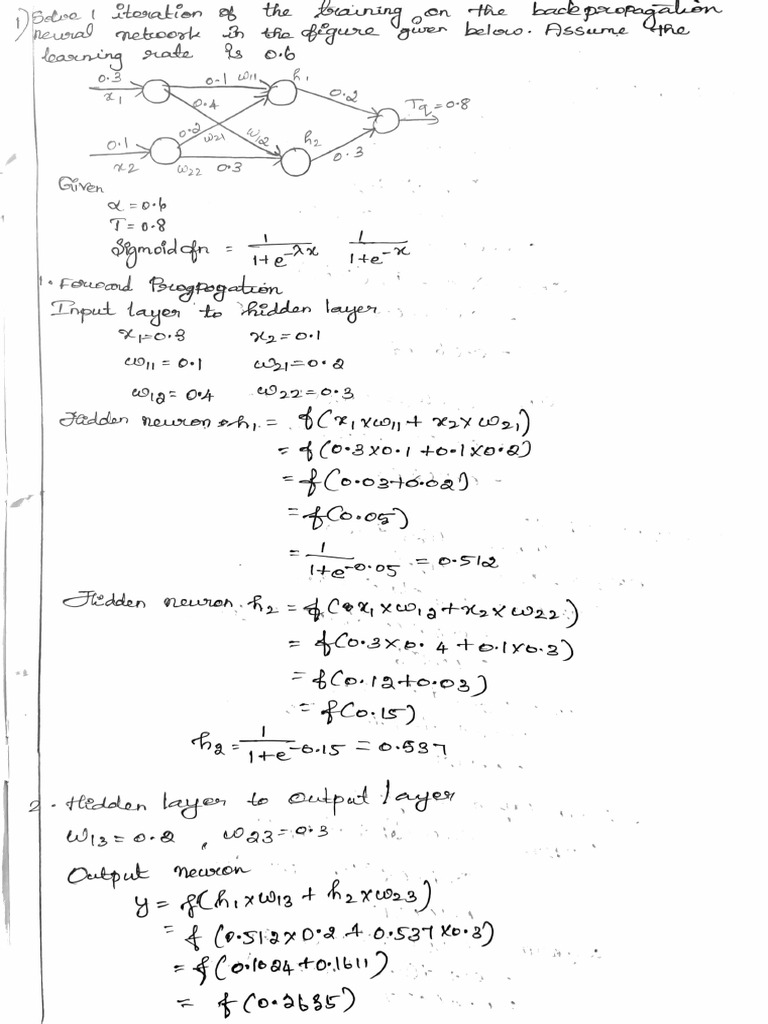 1) Solve 1 iteration of the training on the backpropagation
neural network in the figure given below. Assume the
learning rate is 0.6
0.3 0.1 w11 h1
x1 0.4 0.2 Tq=0.8
0.1 0.2 w21 w12 h2
x2 w22 0.3 0.3
Given
α=0.6
T=0.8
Sigmoid fn = 1/1+e^-λx 1/1+e^-x
1. Forward Brogpogation
Input layer to hidden layer
x1=0.3 x2=0.1
w11=0.1 w21=0.2
w12=0.4 w22=0.3
Hidden neuron h1 = f(x1×w11+x2×w21)
= f(0.3×0.1+0.1×0.2)
= f(0.03+0.02)
= f(0.05)
= 1/1+e^-0.05 = 0.512
Hidden neuron h2 = f(x1×w12+x2×w22)
= f(0.3×0.4+0.1×0.3)
= f(0.12+0.03)
= f(0.15)
h2 = 1/1+e^-0.15 = 0.537
2. Hidden layer to output layer
w13=0.2, w23=0.3
Output neuron
y = f(h1×w13+h2×w23)
= f(0.512×0.2+0.537×0.3)
= f(0.1024+0.1611)
= f(0.2635)